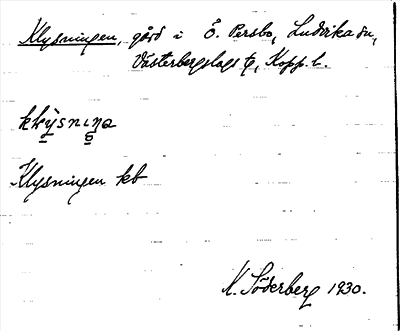 Klysningen, gård i Ö. Persbo, Ludvika sn,
Västerbergslags tg, Kopp. l.
kḷysnıŋa
Klysningen kb
K. Söderberg 1930.